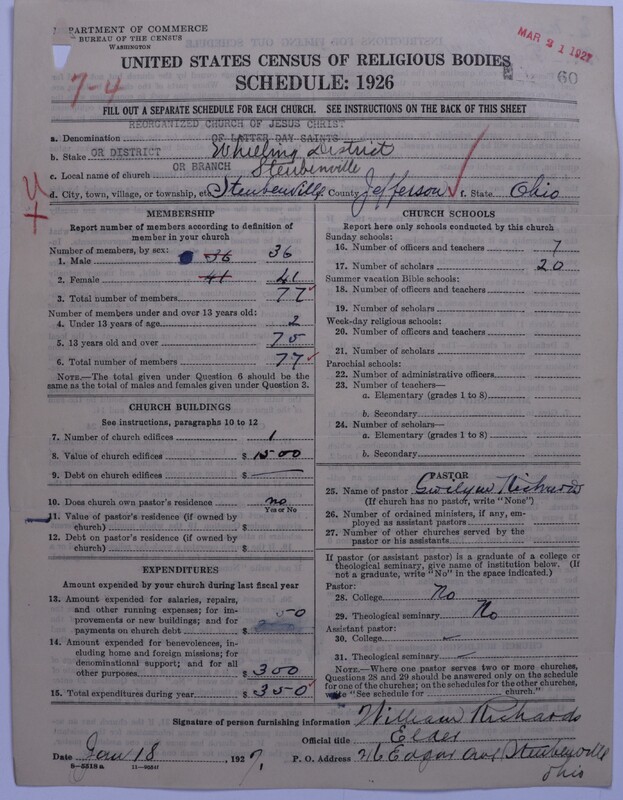 DEPARTMENT OF COMMERCE
BUREAU OF THE CENSUS
WASHINGTON
MAR 21 1927
UNITED STATES CENSUS OF RELIGIOUS BODIES
SCHEDULE: 1926
60
7-4
FILL OUT A SEPARATE SCHEDULE FOR EACH CHURCH. SEE INSTRUCTIONS ON THE BACK OF THIS SHEET
REORGANIZED CHURCH OF JESUS CHRIST
a. Denomination OF LATTER DAY SAINTS
b. State OR DISTRICT Wheeling District
c. Local name of church OR BRANCH Steubenville
d. City, town, village, or township, etc. Steubenville County Jefferson f. State Ohio
MEMBERSHIP
Report number of members according to definition of
member in your church
Number of members, by sex:
1. Male 36 36
2. Female 41 41
3. Total number of members 77
Number of members under and over 13 years old:
4. Under 13 years of age 2
5. 13 years old and over 75
6. Total number of members 77
NOTE.—The total given under Question 6 should be the
same as the total of males and females given under Question 3.
CHURCH BUILDINGS
See instructions, paragraphs 10 to 12
7. Number of church edifices 1
8. Value of church edifices $ 1500
9. Debt on church edifices $
10. Does church own pastor's residence no
Yes or No
11. Value of pastor's residence (if owned by
church) $
12. Debt on pastor's residence (if owned by
church) $
EXPENDITURES
Amount expended by your church during last fiscal year
13. Amount expended for salaries, repairs,
and other running expenses; for im-
provements or new buildings; and for
payments on church debt $ 50
14. Amount expended for benevolences, in-
cluding home and foreign missions; for
denominational support; and for all
other purposes $ 300
15. Total expenditures during year $ 350
CHURCH SCHOOLS
Report here only schools conducted by this church
Sunday schools:
16. Number of officers and teachers 7
17. Number of scholars 20
Summer vacation Bible schools:
18. Number of officers and teachers
19. Number of scholars
Week-day religious schools:
20. Number of officers and teachers
21. Number of scholars
Parochial schools:
22. Number of administrative officers
23. Number of teachers—
a. Elementary (grades 1 to 8)
b. Secondary
24. Number of scholars—
a. Elementary (grades 1 to 8)
b. Secondary
PASTOR
25. Name of pastor Gwilym Richards
(If church has no pastor, write "None")
26. Number of ordained ministers, if any, em-
ployed as assistant pastors
27. Number of other churches served by the
pastor or his assistants
If pastor (or assistant pastor) is a graduate of a college or
theological seminary, give name of institution below. (If
not a graduate, write "No" in the space indicated.)
Pastor:
28. College No
29. Theological seminary No
Assistant pastor:
30. College
31. Theological seminary
NOTE.—Where one pastor serves two or more churches,
Questions 28 and 29 should be answered only on the schedule
for one of the churches; on the schedules for the other churches,
write "See schedule for church."
Signature of person furnishing information William Richards
Official title Elder
Date Jan 18, 1927. P. O. Address 216 Edgar Ave Steubenville
Ohio
8-5518a 11-9204